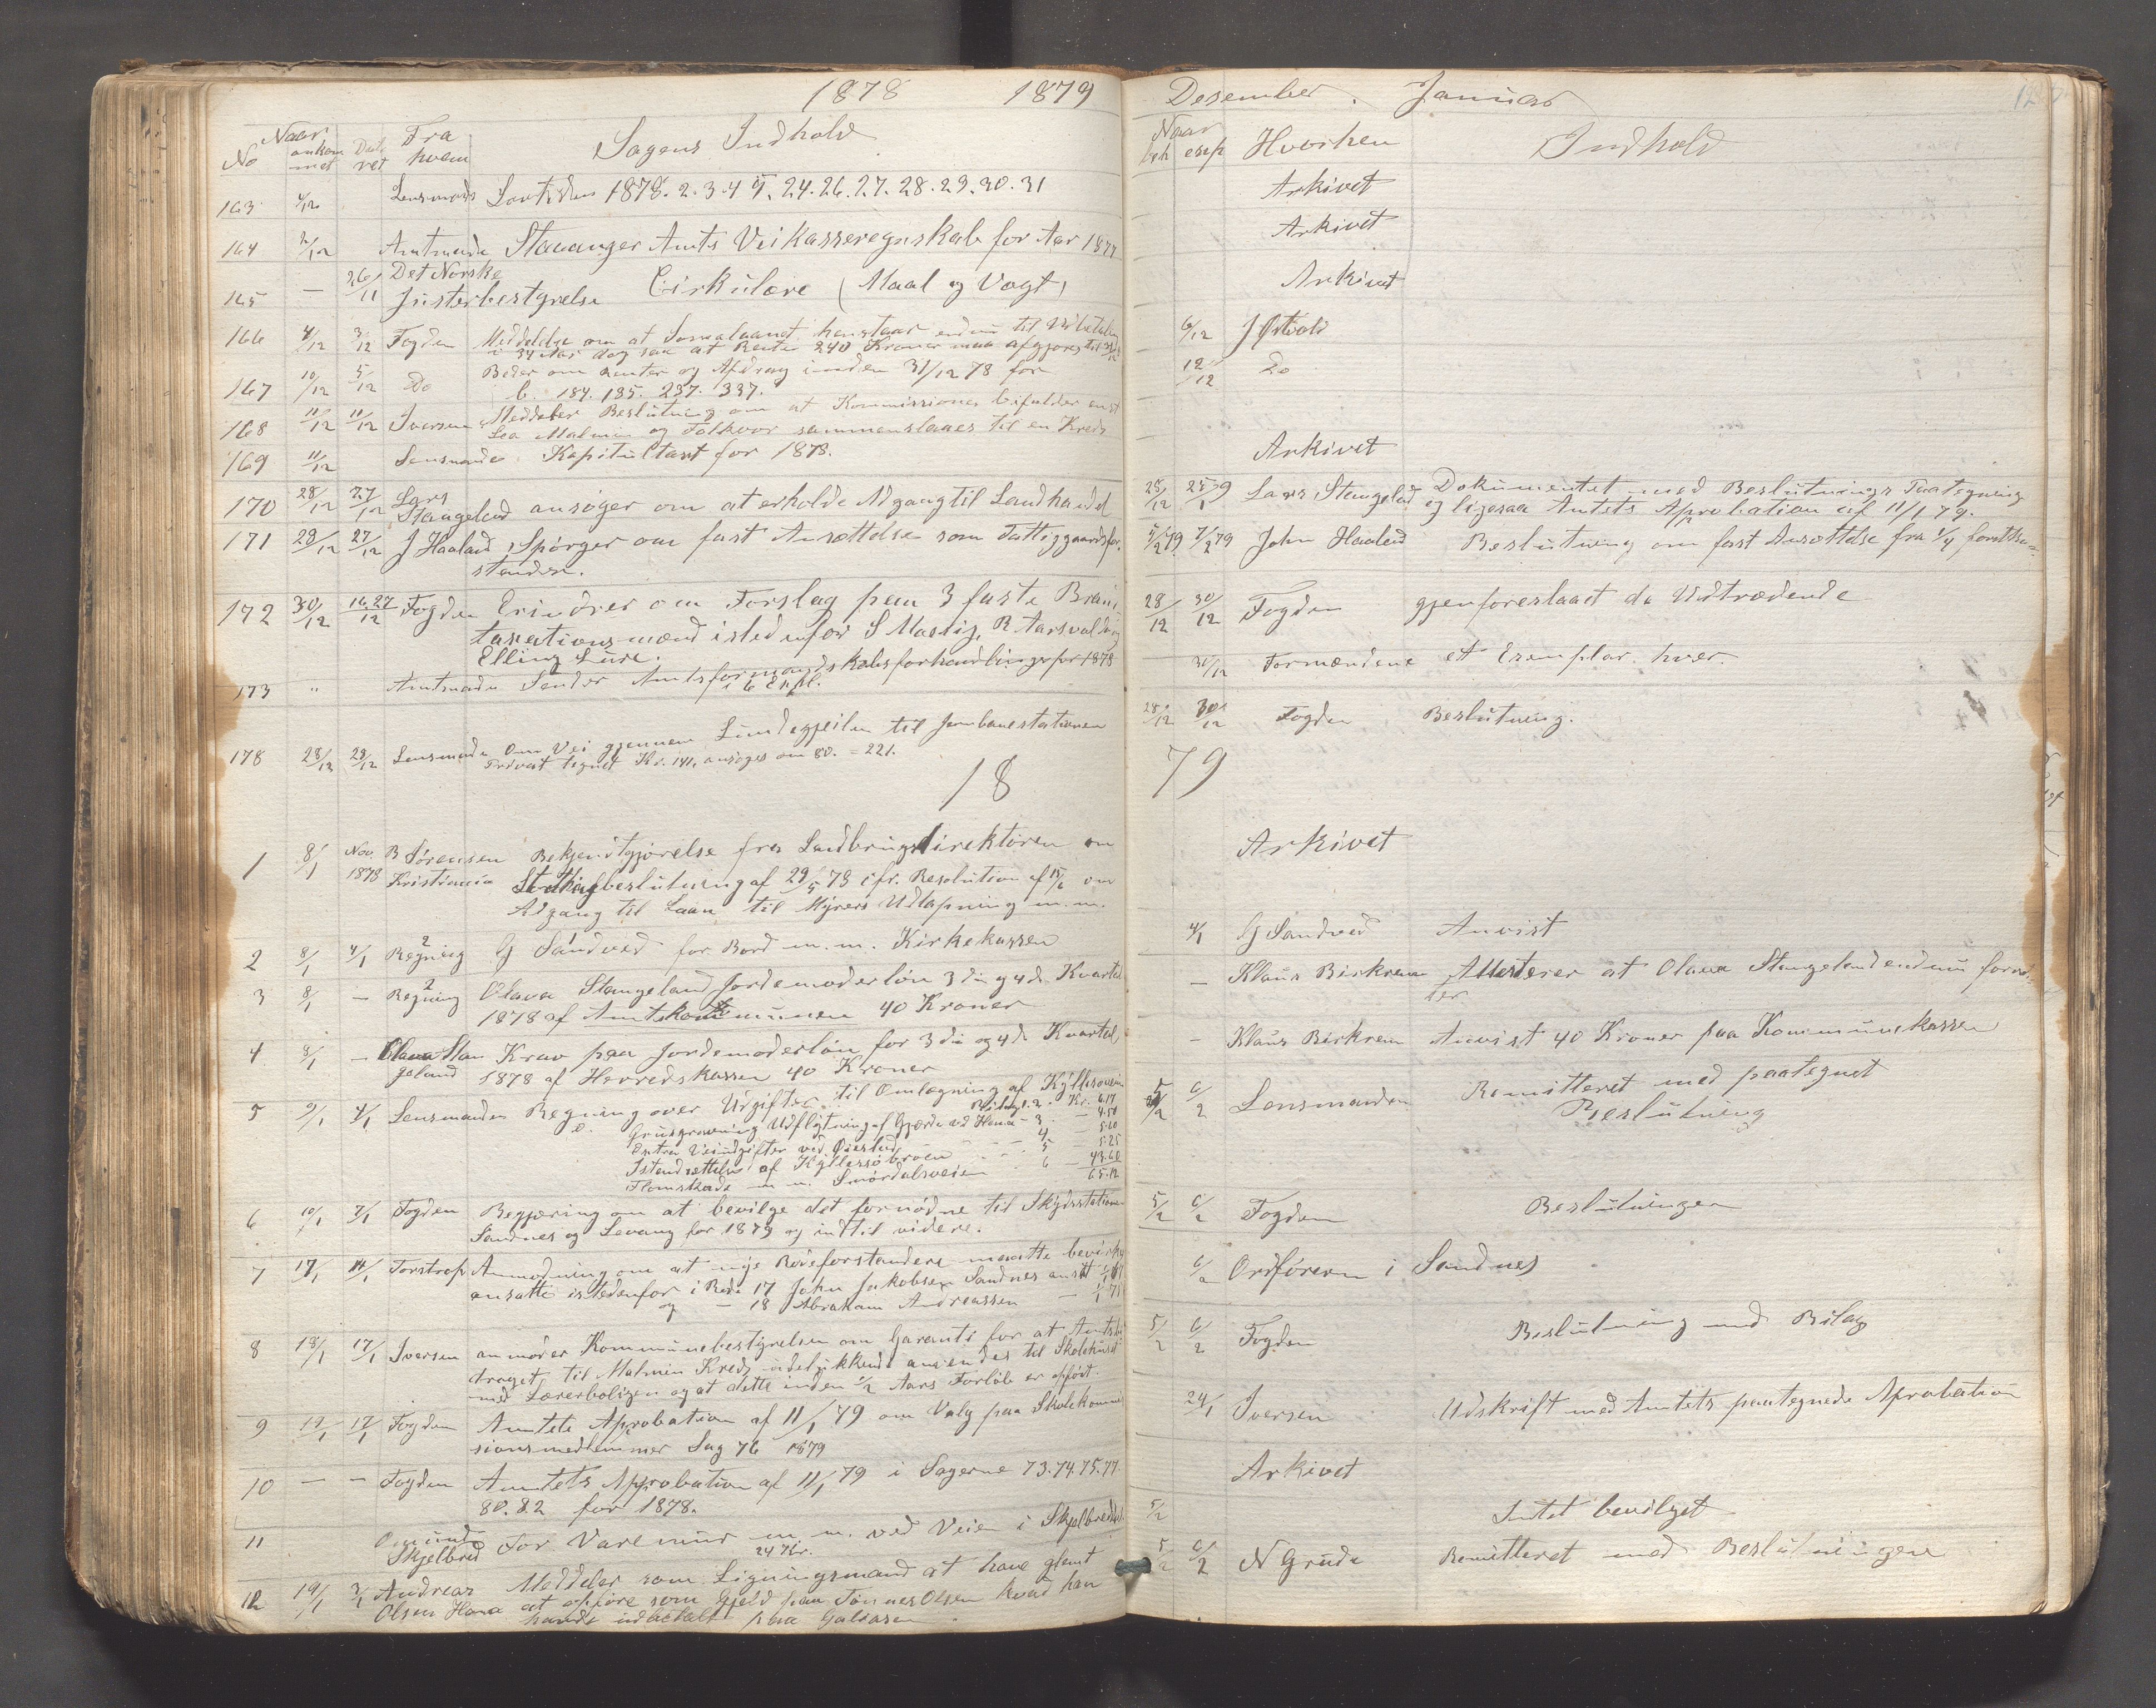 1878 1879
No Naar ankommet Datet Fra hvem Sagens Indhold
163 4/12 Lensmand Lovtidende 1878. 2. 3. 4 5. 24. 26. 27. 28. 29. 30. 31
164 4/12 Amtmanden Stavanger Amts Veikasseregnskab for Aar 1877
165 — 26/11 Det Norske
Justerbestyrelse Cirkulære (Maal og Vægt)
166 4/12 3/12 Fogden Meddelelse om at henstaar endnu til Udbetaling
i 34 Aar dog saa at Rente 240 Kroner maa afgjøres til 31/12
167 10/12 5/12 Do Beder om Renter og Afdrag inden 31/12 78 for
184. 185. 237. 337.
168 11/12 11/12 Iversen Meddeler Beslutning om at Kommissionen bifalder enst
Malmin og sammenslaaes til en Kreds
169 11/12 Lensmanden Kapitultaxt for 1878.
170 28/12 27/12 Lars
Stangeland ansøger om at erholde Adgang til Landhandel
171 28/12 27/12 J Haaland, Spørger om fast Ansættelse som Fattiggaardsfor-
stander.
172 30/12 16.27/12 Fogden Erindrer om Forslag paa 3 faste Brand-
taxationsmænd istedenfor S Maslig, R Aarsvold og
Elling Lure.
173 " Amtmanden Sender Amtsformandskabsforhandlinger for 1878
i 6 Expl.
178 28/12 28/12 Lensmand Om Vei gjennem Lundegjeilen til Jernbanestationen
Privat tegnet Kr. 141, ansøges om 80. = 221.
18
1 8/1 Nov. 1878 B Sørensen Bekjendtgjørelse fra Landbrugsdirektøren om
Kristiania Storthingsbeslutning af 29/5 78 cfr. Resolution af 15/6 om
Adgang til Laan til Myrers Udtapning m.m.
2 8/1 4/1 Regning G Sandved for Bord m.m. Kirkekassen
3 8/1 — Regning Olava Stangeland Jordemoderløn 3die og 4de Kvartal
1878 af Amtskommunen 40 Kroner
4 8/1 — Olava Stan Krav paa Jordemoderløn for 3die og 4de Kvartal
geland 1878 af Herredskassen 40 Kroner
5 9/1 4/1 Lensmanden Regning over Udgifter til Omlægning af
Bilag 2. Kr. 6.17
Grusgravning Udflytning af Gjærde ved Hana - 3 — 4.50
Extra Veiudgifter ved Øiestad 4 — 5.60
Istandsættelse af Kyllesøbroen 5 5.25
Flomskade m.m. Smørdalsveien 6 — 43.60
65.12
6 10/1 7/1 Fogden Begjæring om at bevilge det fornødne til Skydsstationen
Sandnes og Levang for 1879 og indtil videre.
7 17/1 14/1 Torstrop Anmodning om at nye Rodeforstandere maatte bevirkes
ansatte istedenfor i Rode 17 John Jakobsen Sandnes ansat
og — 18 Abraham Andreassen —
8 18/1 17/1 Iversen anmoder Kommunebestyrelsen om Garanti for at Amtsbi
draget til Malmin Kreds udelukkende anvendes til Skolehuset
med Lærerboligen og at dette inden 1/2 Aars Forløb er opført.
9 17/1 17/1 Fogden Amtets Aprobation af 11/1 79 om Valg paa Skolekommis
sionsmedlemmer Sag 76 1879
10 — — Fogden Amtets Approbation af 11/1 79 i Sagerne 73.74.75.77.
80.82 for 1878.
11 Omund
Skjelbred For Varemur m.m. ved Veien i Skjelbred
24 Kr.
12 19/1 Andreas Meddeler som Ligningsmand at have glemt
Olsen Hana at opføre som Gjæld paa Tønnes Olsen hvad han
havde indbetalt paa Galeasen.
Desember. Januar
Naar beh exp Hvorhen Indhold
Arkivet
Arkivet
Arkivet
6/12 J Østvold
12/12 Do
Arkivet
28/12 25/1 79 Lars Stangeland Dokumentet med Beslutnings Paategning
og ligesaa Amtets Aprobation af 11/1 79.
5/2 79 7/2 79 John Haaland Beslutning om fast Ansættelse fra 1/4
28/12 30/12 Fogden gjenforeslaaet de Udtrædende
30/12 Formændene et Exemplar hver.
28/12 30/12 Fogden Beslutning.
79
Arkivet
4/1 G Sandved Anvist
— Klaus Birkrem Attesterer at Olava Stangeland endnu forret
ter
— Klaus Birkrem Anvist 40 Kroner paa Kommunekassen
5/2 6/2 Lensmanden Remitteret med paategnet
Beslutning
5/2 6/2 Fogden Beslutningen
6/2 Ordføreren i Sandnes
5/2 6/2 Fogden Beslutning med Bilag
24/1 Iversen Udskrift med Amtets paategnede Aprobation
Arkivet
5/2 Intet bevilget
5/2 6/2 N Grude Remitteret med Beslutningen